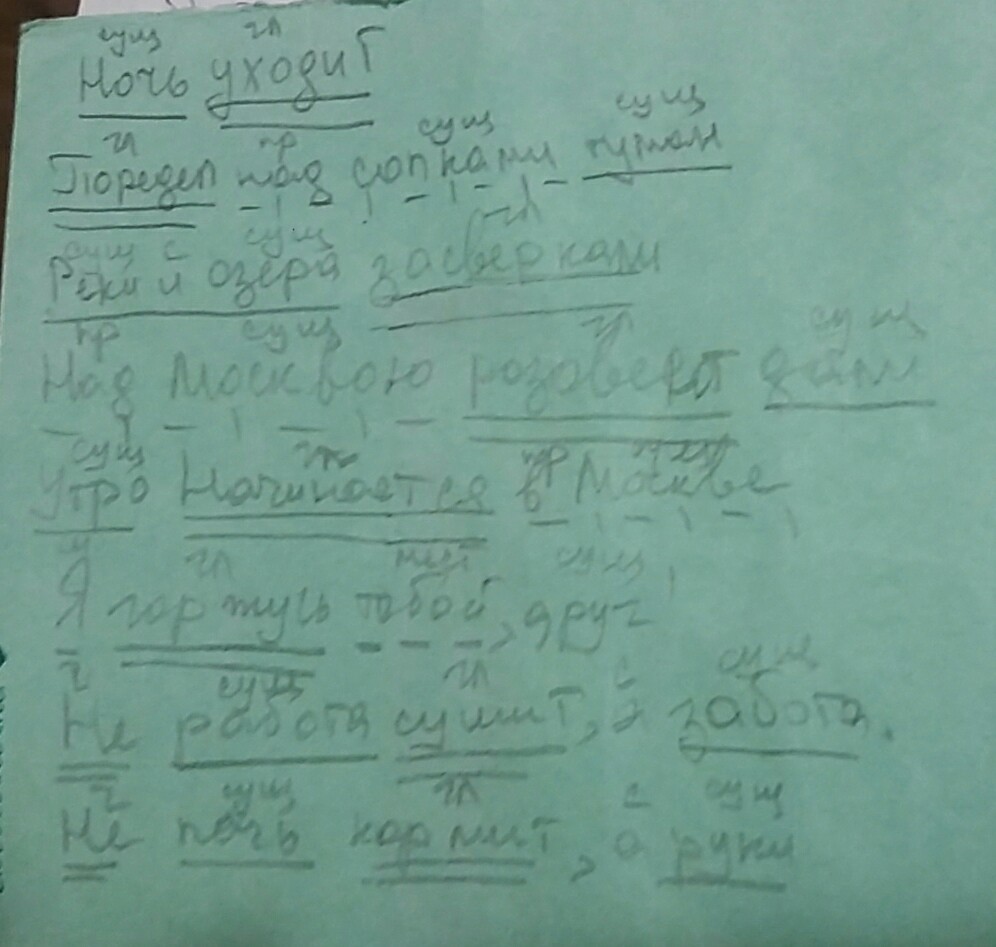 сущ гл
Ночь уходит
гл пр сущ сущ
Поредел над сопками туман
сущ с сущ гл
Реки и озёра засверкали
пр сущ гл сущ
Над Москвою розовеет дали
сущ гл пр сущ
Утро Начинается в Москве
гл мест сущ
Я горжусь тобой, друг!
ч сущ гл с сущ
Не работа сушит, а забота.
ч сущ гл с сущ
Не печь кормит, а руки